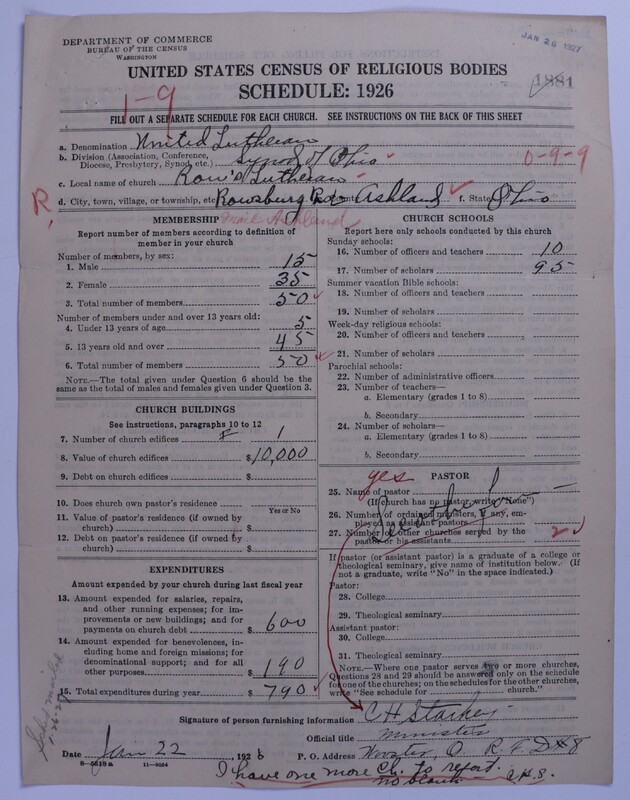 DEPARTMENT OF COMMERCE
BUREAU OF THE CENSUS
WASHINGTON
JAN 26 1927
UNITED STATES CENSUS OF RELIGIOUS BODIES
SCHEDULE: 1926
1881
1-9
FILL OUT A SEPARATE SCHEDULE FOR EACH CHURCH. SEE INSTRUCTIONS ON THE BACK OF THIS SHEET
a. Denomination United Lutheran
b. Division (Association, Conference, Diocese, Presbytery, Synod, etc.) Synod of Ohio
0-9-9
c. Local name of church Row's Lutheran
R,
d. City, town, village, or township, etc Rowsburg Ashland f. State Ohio
Mail Ashland
MEMBERSHIP
Report number of members according to definition of member in your church
Number of members, by sex:
1. Male 15
2. Female 35
3. Total number of members 50
Number of members under and over 13 years old:
4. Under 13 years of age 5
5. 13 years old and over 45
6. Total number of members 50
NOTE.—The total given under Question 6 should be the same as the total of males and females given under Question 3.
CHURCH BUILDINGS
See instructions, paragraphs 10 to 12
7. Number of church edifices 1
8. Value of church edifices $10,000
9. Debt on church edifices $
10. Does church own pastor's residence
Yes or No
11. Value of pastor's residence (if owned by church) $
12. Debt on pastor's residence (if owned by church) $
EXPENDITURES
Amount expended by your church during last fiscal year
13. Amount expended for salaries, repairs, and other running expenses; for improvements or new buildings; and for payments on church debt $ 600
14. Amount expended for benevolences, including home and foreign missions; for denominational support; and for all other purposes $ 190
15. Total expenditures during year $ 790
CHURCH SCHOOLS
Report here only schools conducted by this church
Sunday schools:
16. Number of officers and teachers 10
17. Number of scholars 95
Summer vacation Bible schools:
18. Number of officers and teachers
19. Number of scholars
Week-day religious schools:
20. Number of officers and teachers
21. Number of scholars
Parochial schools:
22. Number of administrative officers
23. Number of teachers—
a. Elementary (grades 1 to 8)
b. Secondary
24. Number of scholars—
a. Elementary (grades 1 to 8)
b. Secondary
yes
PASTOR
25. Name of pastor
(If church has no pastor, write "None")
26. Number of ordained ministers, if any, employed as assistant pastors
27. Number of other churches served by the pastor or his assistants 2
If pastor (or assistant pastor) is a graduate of a college or theological seminary, give name of institution below. (If not a graduate, write "No" in the space indicated.)
Pastor:
28. College
29. Theological seminary
Assistant pastor:
30. College
31. Theological seminary
NOTE.—Where one pastor serves two or more churches, Questions 28 and 29 should be answered only on the schedule for one of the churches; on the schedules for the other churches, write "See schedule for church."
Signature of person furnishing information C H Starkey
Official title Minister
Date Jan 22 1926 P. O. Address Wooster, O. R F D #8
8-5618a 11-9084
I have one more Ch. to report.
no blank. C.H.S.